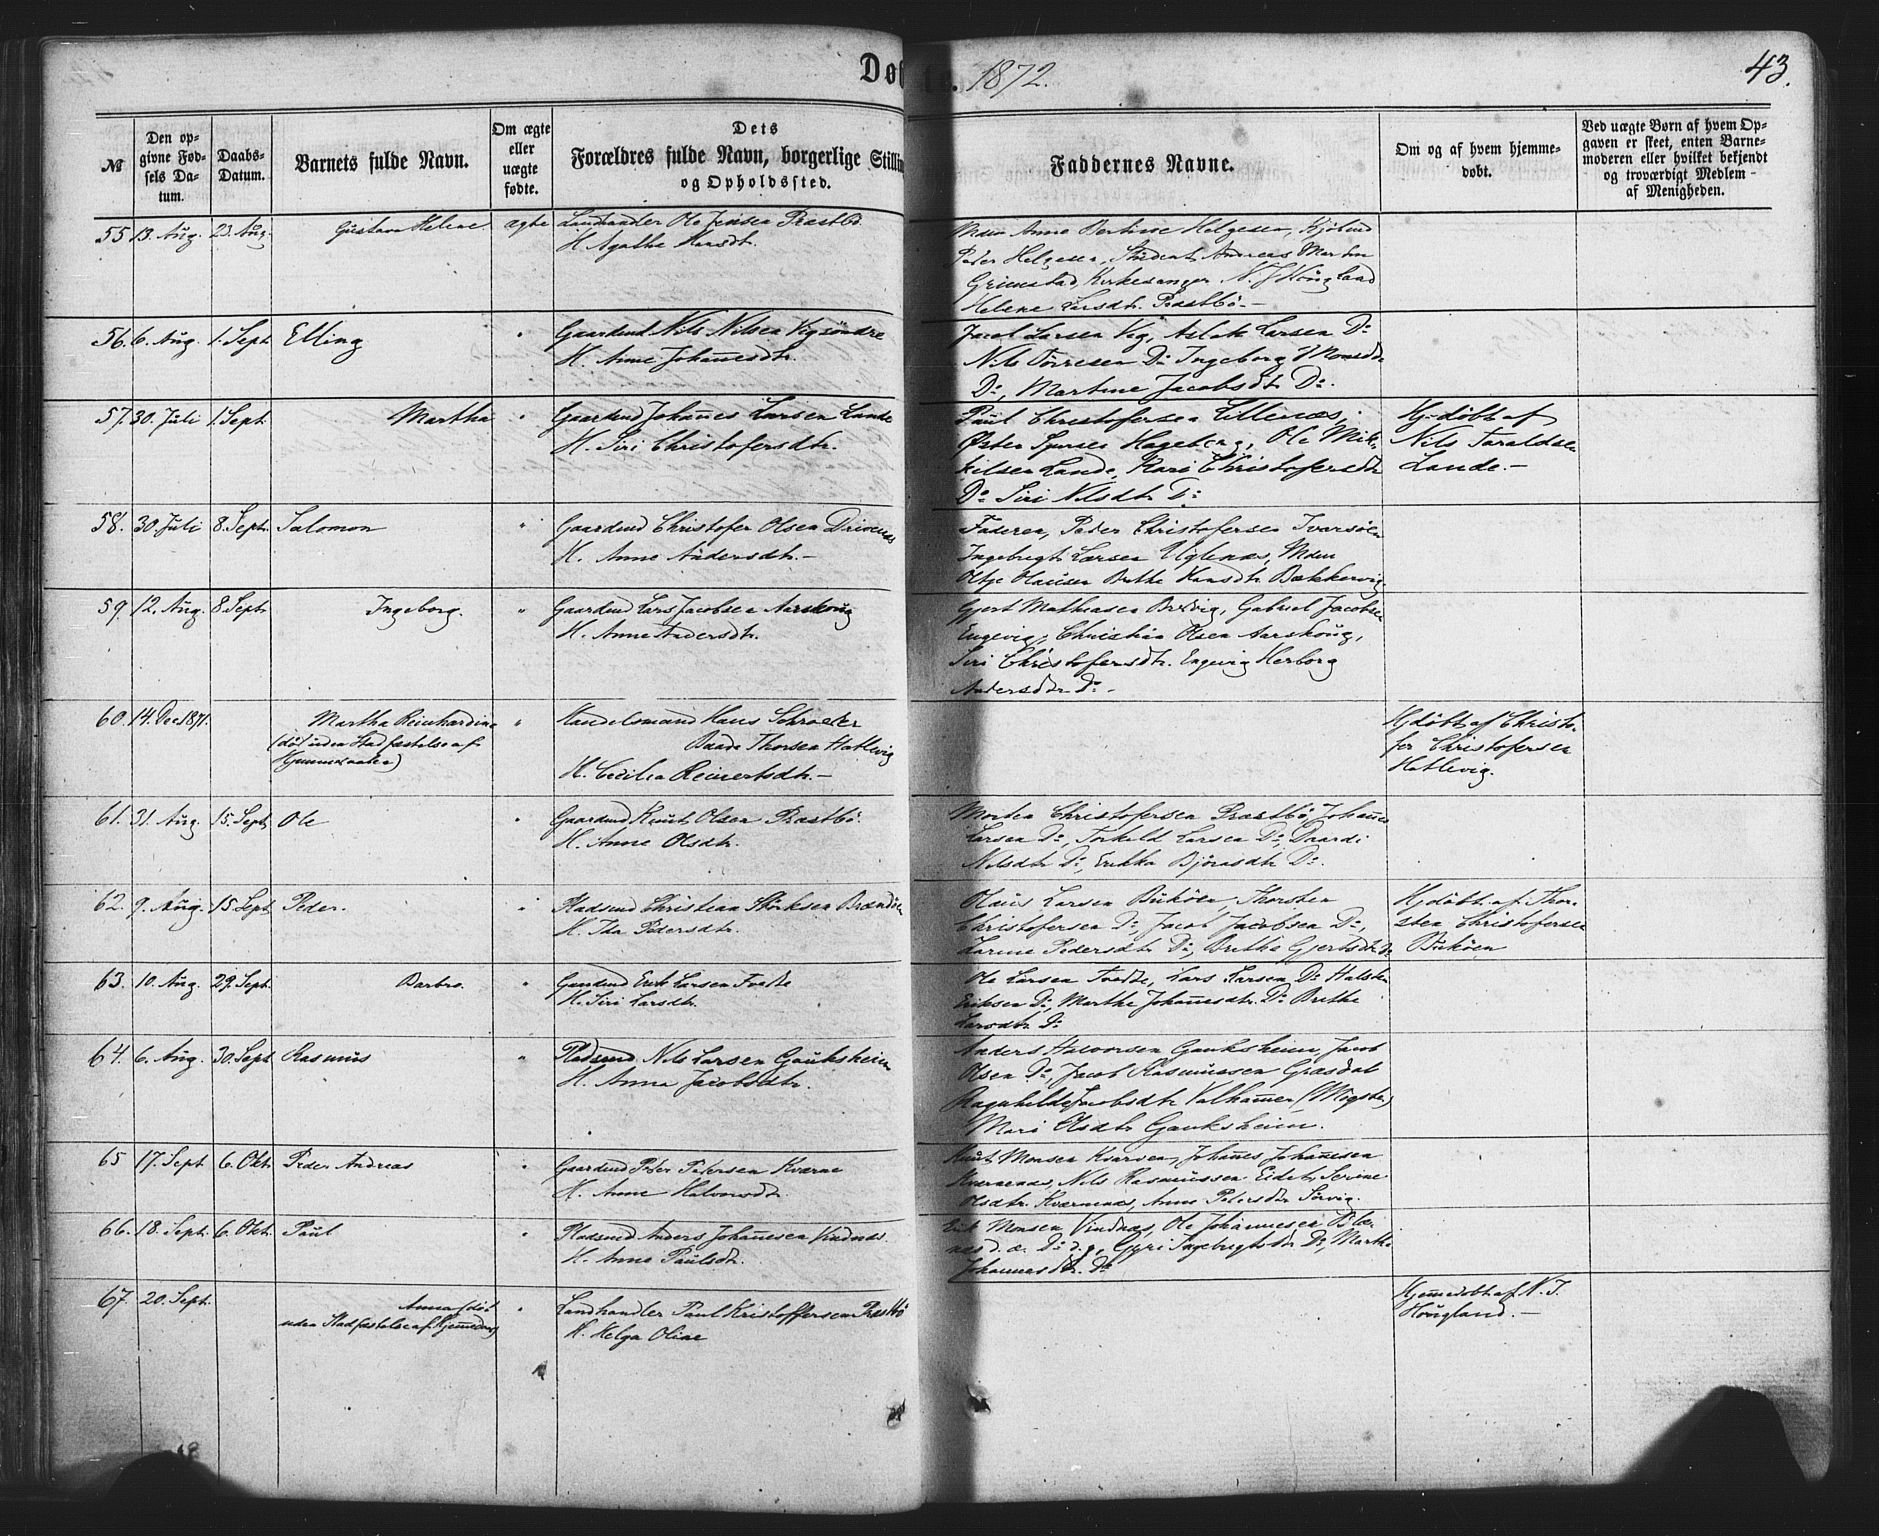 Døbte. 1872.
43.
№
Den op-
givne Fød-
sels Da-
tum.
Daabs-
Datum.
Barnets fulde Navn.
Om ægte
eller
uægte
fødte.
Dets
Forældres fulde Navn, borgerlige Stilling
og Opholdssted.
Faddernes Navne.
Om og af hvem hjemme-
døbt.
Ved uægte Børn af hvem Op-
gaven er skeet, enten Barne-
moderen eller hvilket bekjendt
og troværdigt Medlem
af Menigheden.
55 13. Aug. 23. Aug. Gustava Helene ægte Landhandler Ole Jensen Præstbø
H. Agathe Larsdt.
Mdm Anne Bertine Helgesen, Kjøbmd
Peder Helgesen, Student Andreas Martin
Grimstad, Kirkesanger N. J. Hougland
Helene Larsdtr. Præstbø.-
56. 6. Aug. 1. Sept. Elling " Gaardmd Nils Nilsen Vigsøndre
H. Anne Johannesdtr.
Jacob Larsen Vig, Aslak Larsen Do
Nils Torresen Do Ingeborg Monsdtr
Do, Martine Jacobsdt Do.
57. 30. Juli 1. Sept. Martha " Gaardmd Johannes Larsen Lande
H. Siri Christofersdtr.
Paul Christofersen Littlenæs,
Østen Sjursen Hageberg, Ole Mik-
kelsen Lande, Kari Christofersdtr
Do Siri Nilsdtr Do
Hj-døbt af
Nils Taraldsen
Lande.-
58. 30. Juli 8. Sept. Salomon " Gaardmd Christofer Olsen Drivenæs
H. Anne Andersdtr.-
Faderen, Peder Christofersen Ivarsøen
Ingebrigt Larsen Uglenæs, Mdm
Oltje Olausen Brithe Hansdtr Bækkervig.
59. 12. Aug. 8. Sept. Ingeborg. " Gaardmd Lars Jacobsen Aarskoug
H. Anne Andersdtr.
Gjert Mathiasen Brevig, Gabriel Jacobsen
Engevig, Christian Olsen Aarskoug,
Siri Christofersdtr. Engevig Herborg
Andersdtr Do-
60. 14. Dec 1871. Martha Reinhardine
(død uden Stadfæstelse af
Hjemmedaaben)
" Handelsmand Hans Schrøder
Baade Thorsen Hatlevig
H. Cecilia Reinertsdtr.-
Hjdøbt af Christo-
fer Christofersen
Hatlevig.
61. 31. Aug. 15. Sept Ole " Gaardmd Knut Olsen Præstbø.
H. Anne Olsdtr.
Morten Christofersen Præstbø, Johannes
Larsen Do, Torkild Larsen Do, Daardi
Nilsdtr Do, Erikka Bjørnsdtr Do.
62. 9. Aug. 15. Sept Peder. " Pladsmd Christian Størksen Brandøen
H. Tha Pedersdtr.
Olaus Larsen Bukøen Thorsten
Christofersen Do, Jacob Jacobsen Do,
Larine Pedersdtr Do, Brithe Gjertsdtr Do
Hjdøbt af Thor-
sten Christofersen
Bukøen
63. 10. Aug. 29. Sept. Barbro. " Gaardmd Erik Larsen Tvedte
H. Siri Larsdtr.
Ole Larsen Tvedte, Lars Larsen Do Halsten
Eriksen Do, Marthe Johannesdtr. Do Brithe
Larsdtr Do
64. 6. Aug. 30. Sept Rasmus " Pladsmd Nils Larsen Gauksheim
H. Anna Jacobsdtr.
Anders Halvorsen Gauksheim, Jacob
Olsen Do, Jacob Rasmussen Græsdal
Ragnhilde Jacobsdtr Valhamer (Møgster)
Mari Olsdtr Gauksheim.
65 17. Sept 6. Okt. Peder Andreas " Gaardmd Peter Petersen Kværne
H. Anne Halvorsdtr.
Knut Monsen Kvarven, Johannes Johannesen
Kværnenæs, Nils Rasmussen Eidet, Serine
Olsdtr. Kværnenæs, Anne Petersdtr Sørvig.
66. 18. Sept. 6. Okt. Paul " Pladsmd Anders Johannesen Vindnæs.
H. Anne Paulsdtr.
Erik Monsen Vindnæs, Ole Johannesen Blæ-
næs d. æ. Do d. y. Gyri Ingebrigtsdtr Do, Marthe
Johannesdtr. Do
67. 20. Sept. Anna (død
uden Stadfæstelse af Hjemmedaab)
" Landhandler Paul Kristoffersen Præstbø
H. Helga Oline
Hjemmedøbt af N. J.
Hougland.-